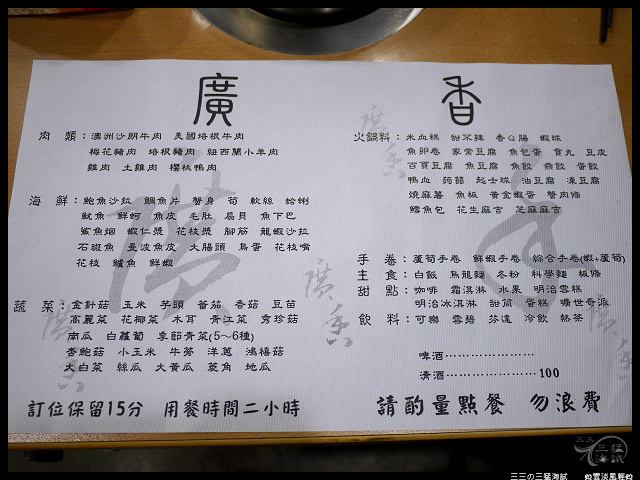 廣香
肉 類：澳洲沙朗牛肉 美國培根牛肉
梅花豬肉 培根豬肉 紐西蘭小羊肉
雞肉 土雞肉 櫻桃鴨肉
海 鮮：鮑魚沙拉 鯛魚片 蟹身 筍 軟絲 蛤蜊
魷魚 鮮蚵 魚皮 毛肚 扇貝 魚下巴
鯊魚烟 蝦仁漿 花枝漿 腳筋 龍蝦沙拉
石斑魚 曼波魚皮 大腸頭 鳥蛋 花枝嘴
花枝 鱸魚 鮮蝦
蔬 菜：金針菇 玉米 芋頭 蕃茄 香菇 豆苗
高麗菜 花椰菜 木耳 青江菜 秀珍菇
南瓜 白蘿蔔 季節青菜(5～6種)
杏鮑菇 小玉米 牛蒡 洋蔥 鴻禧菇
大白菜 絲瓜 大黃瓜 菱角 地瓜
訂位保留15分 用餐時間二小時
火鍋料：米血糕 甜不辣 香Q腸 蝦球
魚卵卷 家常豆腐 魚包蛋 貢丸 豆皮
百頁豆腐 魚豆腐 魚餃 燕餃 蛋餃
鴨血 蒟蒻 起士球 油豆腐 凍豆腐
燒麻薯 魚板 黃金蝦蛋 蟹肉條
鱈魚包 花生麻吉 芝麻麻吉
手 卷：蘆筍手卷 鮮蝦手卷 綜合手卷(蝦+蘆筍)
主 食：白飯 烏龍麵 冬粉 科學麵 板條
甜 點：咖啡 霜淇淋 水果 明治雪糕
明治冰淇淋 甜筒 蛋糕 曠世奇派
飲 料：可樂 雪碧 芬達 冷飲 熱茶
啤酒…………………
清酒…………………100
請酌量點餐 勿浪費
三三の三猛海試 雲淡風輕